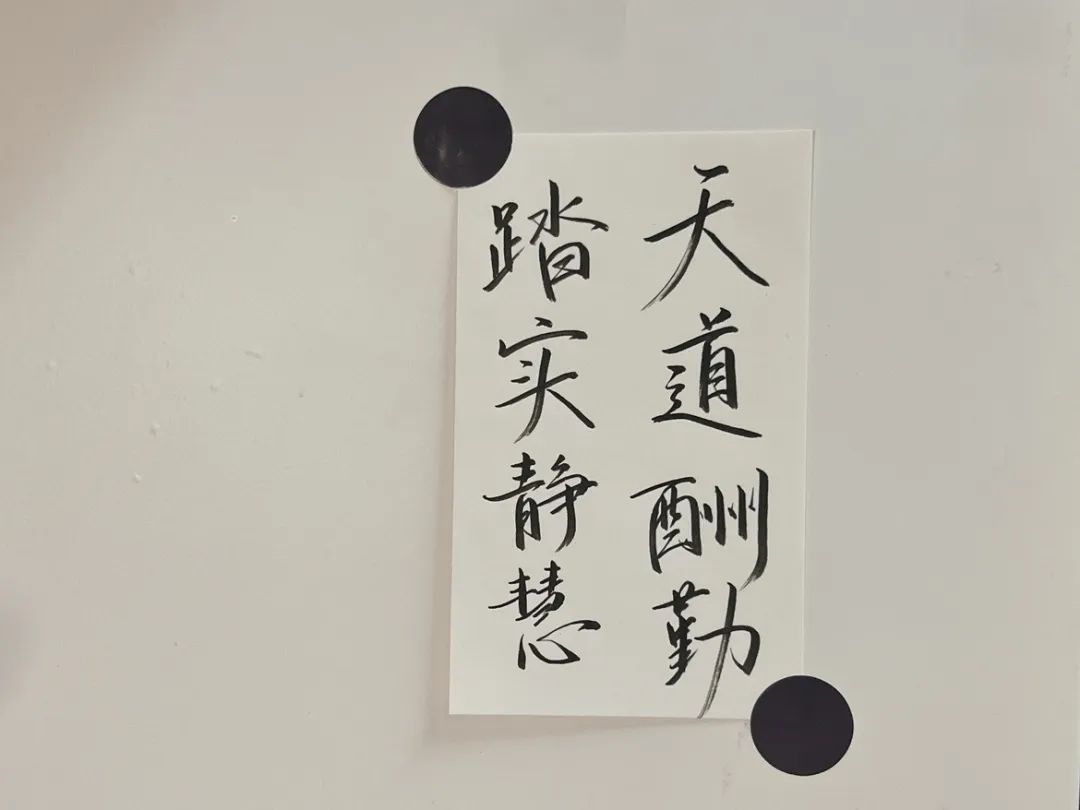 天道酬勤
踏实静慧